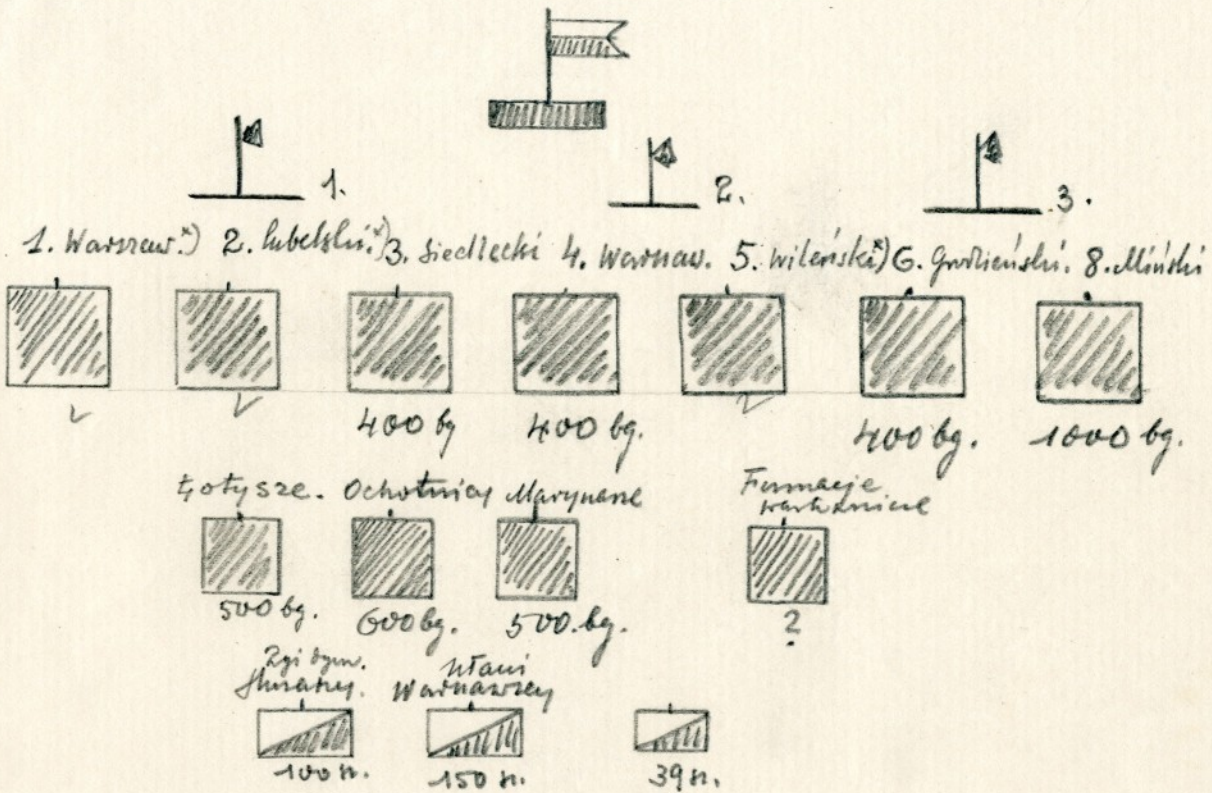 1. 2. 3.
1. Warszaw.*) 2. Lubelski.*) 3. Siedlecki 4. Warszaw. 5. Wileński*) 6. Grodzieński. 8. Miński
400 bg 400 bg. 400 bg. 1000 bg.
Łotysze. Ochotnicy Marynarze Formacje
wartownicze
500 bg. 600 bg. 500. bg. ?
Huzarzy. Ułani
Warszawscy
100 sz. 150 sz. 39 sz.